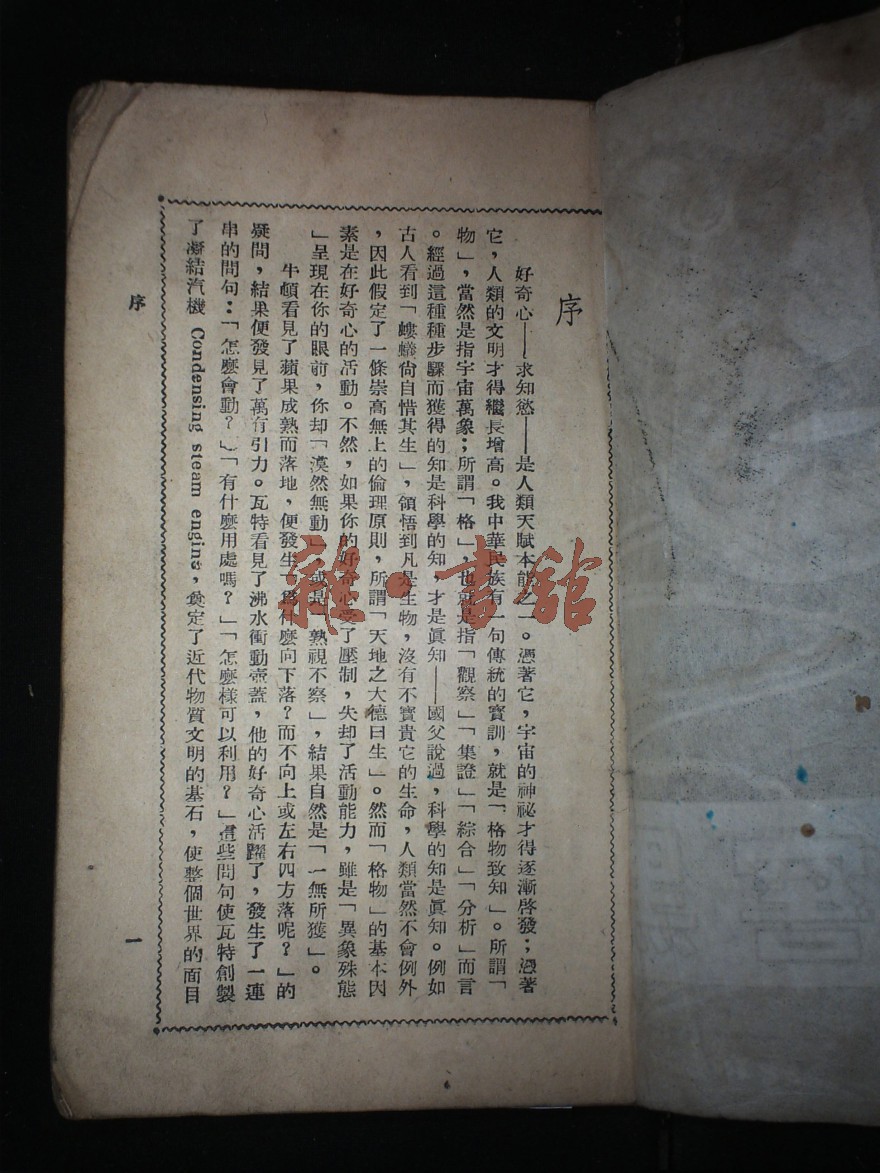 序
好奇心——求知慾——是人類天賦本能之一。憑著它，宇宙的神祕才得逐漸啓發；憑著
它，人類的文明才得繼長增高。我中華民族有一句傳統的寶訓，就是「格物致知」。所謂「
物」，當然是指宇宙萬象；所謂「格」，也就是指「觀察」「集證」「綜合」「分析」而言
。經過這種種步驟而獲得的知是科學的知，才是眞知——國父說過，科學的知是眞知。例如
古人看到「螻蟻尙自惜其生」，領悟到凡是生物，沒有不寶貴它的生命，人類當然不會例外
，因此假定了一條崇高無上的倫理原則，所謂「天地之大德曰生」。然而「格物」的基本因
素是在好奇心的活動。不然，如果你的好奇心受了壓制，失却了活動能力，雖是「異象殊態
」呈現在你的眼前，你却「漠然無動」或是「熟視不察」，結果自然是「一無所獲」。
牛頓看見了蘋果成熟而落地，便發生「爲什麼向下落？而不向上或左右四方落呢？」的
疑問，結果便發見了萬有引力。瓦特看見了沸水衝動壺蓋，他的好奇心活躍了，發生了一連
串的問句：「怎麼會動？」「有什麼用處嗎？」「怎麼樣可以利用？」這些問句使瓦特創製
了凝結汽機 Condensing steam engine，奠定了近代物質文明的基石，使整個世界的面目
序
一
雜·書館